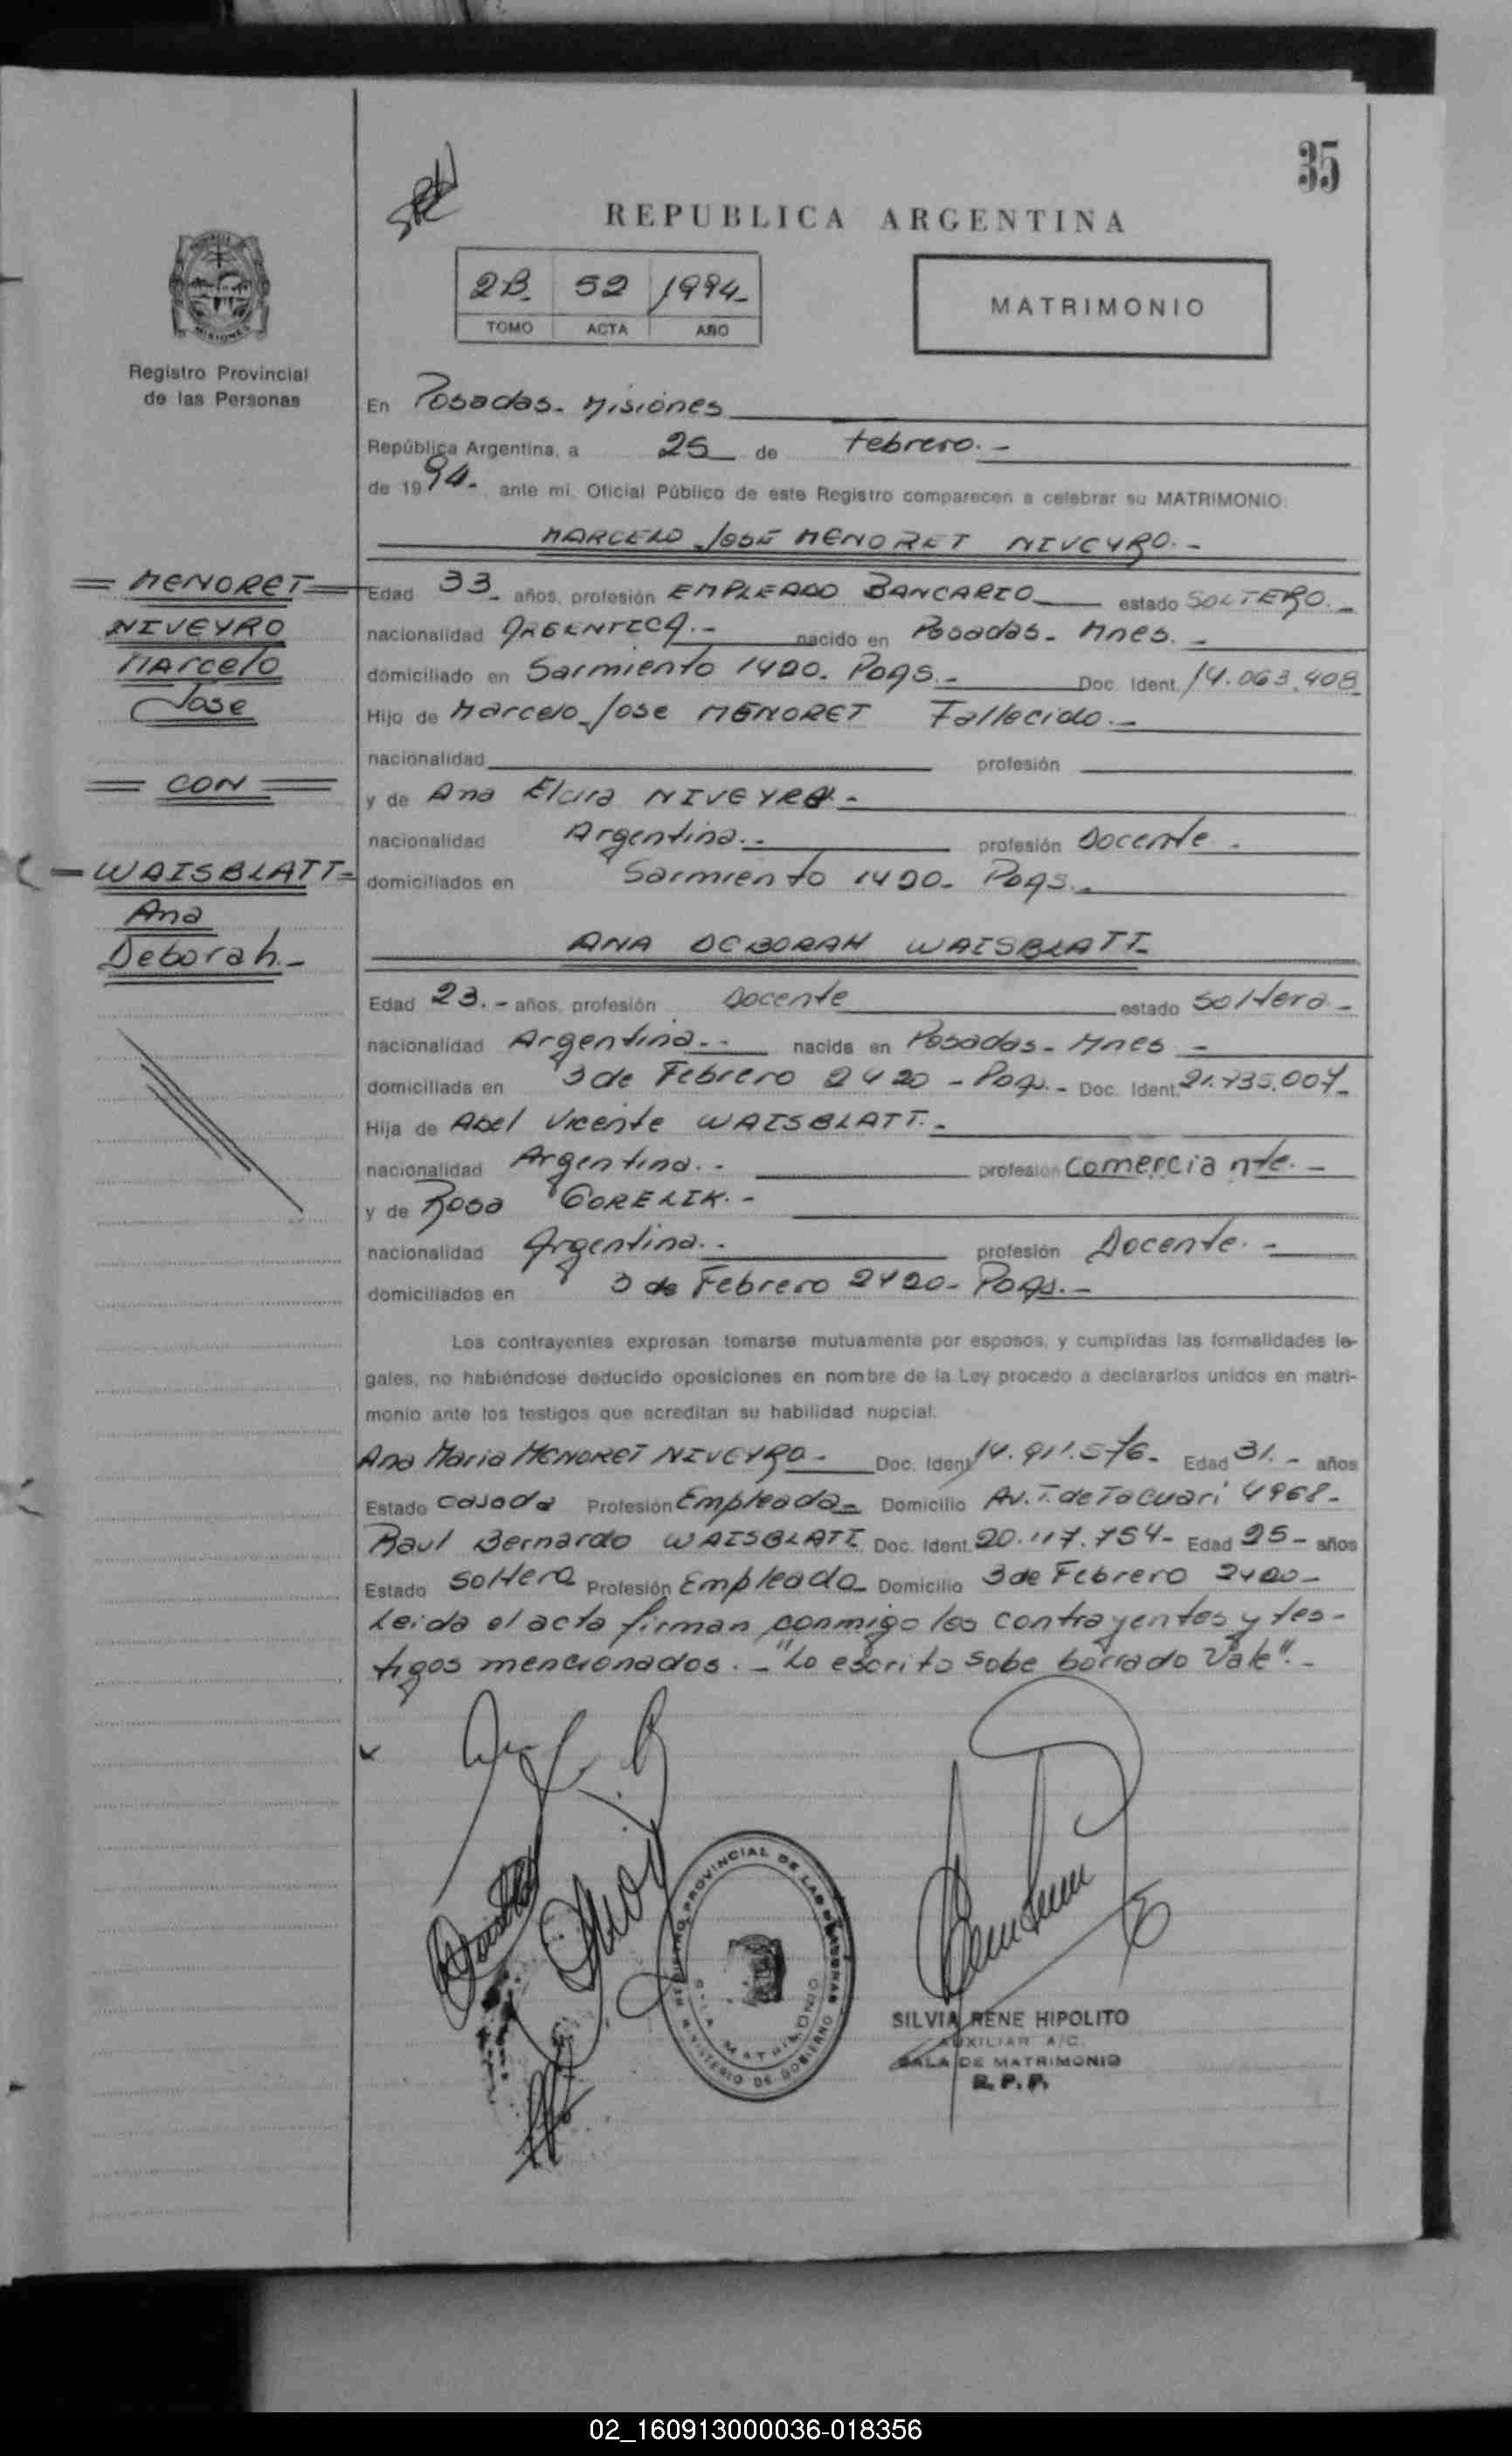 35
REPUBLICA ARGENTINA
2B. 52 1994.-
TOMO ACTA AÑO
MATRIMONIO
Registro Provincial
de las Personas
En Posadas. Misiones
República Argentina, a 25 de febrero.-
de 1994.- ante mi, Oficial Público de este Registro comparecen a celebrar su MATRIMONIO:
MARCELO JOSÉ MENORET NIVEYRO.-
MENORET
NIVEYRO
Marcelo
Jose
CON
WAISBLATT
Ana
Deborah.-
Edad 33 años, profesión EMPLEADO BANCARIO estado SOLTERO.-
nacionalidad ARGENTINA.- nacido en Posadas. Mnes.-
domiciliado en Sarmiento 1420. Pdas.- Doc. Ident. 14.063.408
Hijo de Marcelo Jose MENORET Fallecido.-
nacionalidad profesión
y de Ana Elvira NIVEYRO.-
nacionalidad Argentina.- profesión Docente.-
domiciliados en Sarmiento 1420. Pdas.-
ANA DEBORAH WAISBLATT.-
Edad 23.- años, profesión Docente estado soltera.-
nacionalidad Argentina.- nacida en Posadas. Mnes.-
domiciliada en 3 de Febrero 2420 - Pdas.- Doc. Ident. 21.735.007.-
Hija de Abel Vicente WAISBLATT.-
nacionalidad Argentina.- profesión comerciante.-
y de Rosa GORELIK.-
nacionalidad Argentina.- profesión Docente.-
domiciliados en 3 de Febrero 2420- Pdas.-
Los contrayentes expresan tomarse mutuamente por esposos, y cumplidas las formalidades le-
gales, no habiéndose deducido oposiciones en nombre de la Ley procedo a declararlos unidos en matri-
monio ante los testigos que acreditan su habilidad nupcial.
Ana Maria MENORET NIVEYRO.- Doc. Ident 14.911.576.- Edad 31.- años
Estado casada Profesión Empleada.- Domicilio Av. T. de Tacuari 4968.-
Raul Bernardo WAISBLATT Doc. Ident. 20.117.754- Edad 25- años
Estado soltero Profesión Empleado Domicilio 3 de Febrero 2420-
Leida el acta firman conmigo los contrayentes y tes-
tigos mencionados.- "Lo escrito sobe borrado Vale".-
REGISTRO PROVINCIAL DE LAS PERSONAS
SALA MATRIMONIO
MINISTERIO DE GOBIERNO
SILVIA RENE HIPOLITO
AUXILIAR A/C.
SALA DE MATRIMONIO
R.P.P.
02_160913000036-018356